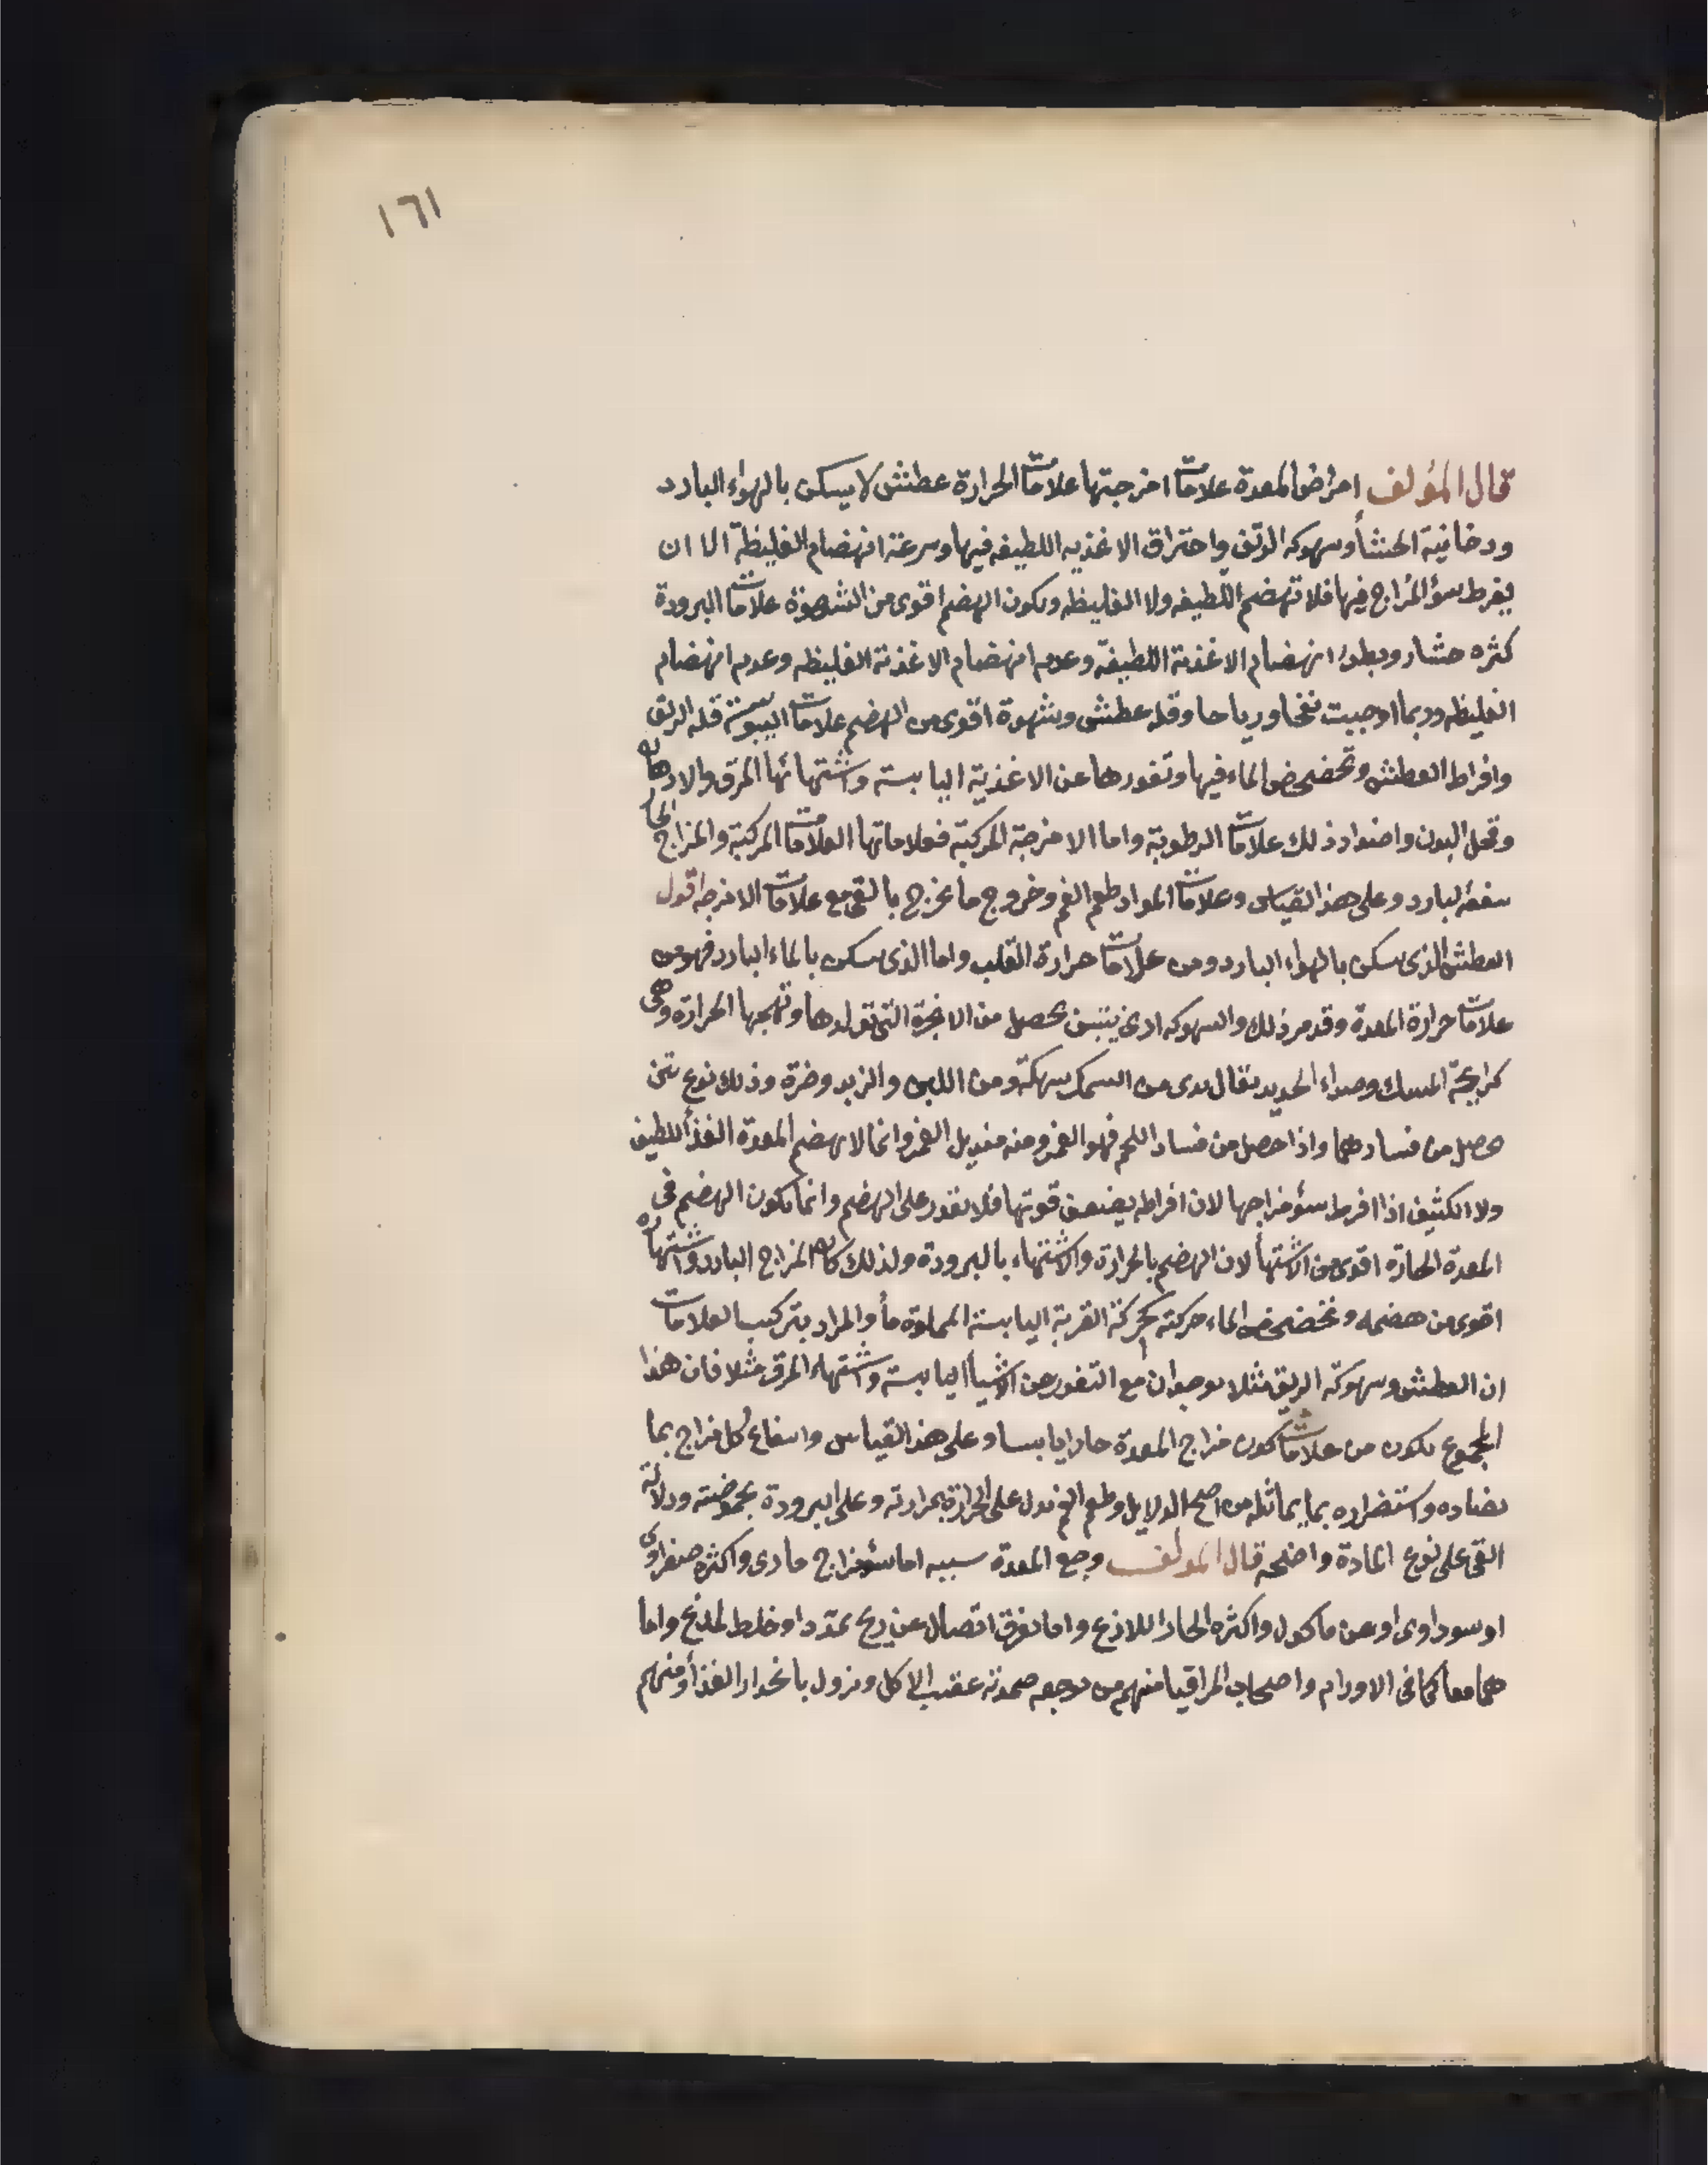 ١٦١
قال المؤلف امراض المعدة علامات امزجتها علامات الحرارة عطش لا يسكن بالهواء البارد
ودخانية الجشأ وسهوكه الريق واحتراق الاغذيه اللطيفه فيها وسرعة انهضام الغليظة الا ان
يفرط سؤ المزاج فيها فلا تهضم اللطيفه ولا الغليظه ويكون الهضم اقوى من الشهوة علامات البرودة
كثره جشاء وبطء انهضام الاغذية اللطيفة وعدم انهضام الاغذية الغليظه وعدم انهضام
الغليظه وربما اوجبت نفخا ورياحا وقله عطش وشهوة اقوى من الهضم علامات اليبوسة قله الريق
وافراط العطش وتخضخض الماء فيها ونفورها عن الاغذية اليابسة واشتهائها المرق والادهان
وقحل البدن واضداد ذلك علامات الرطوبة واما الامزجة المركبة فعلاماتها العلامات المركبة والمزاج الحار
ينفعه البارد وعلى هذا القياس وعلامات المواد طعم الفم وخروج ما يخرج بالقي مع علامات الامزجه اقول
العطش الذى يسكن بالهواء البارد ومن علامات حرارة القلب واما الذى يسكن بالماء البارد فهو من
علامات حرارة المعدة وقد مر ذلك والسهوكه ادنى نتن يحصل من الابخرة التى تولدها وتهيجها الحرارة وهى
كرايحة السمك وصداء الحديد يقال يدى من السمك سهكة ومن اللبن والزبد وضرة وذلك نوع نتن
حصل من فسادهما واذا حصل من فساد اللحم فهو الغمر ومنه منديل الغمر وانما لا يهضم المعدة الغذأ اللطيف
ولا الكثيف اذا افرط سؤ مزاجها لان افراطه يضعف قوتها فلا تقدر على الهضم وانما يكون الهضم فى
المعدة الحارة اقوى من الاشتهأ لان الهضم بالحرارة والاشتهاء بالبرودة ولذلك كان المزاج البارد واشتهاؤه
اقوى من هضمه وتخضخض الماء حركته كحركة القربة اليابسة المملوة مأ والمراد بتركيب العلامات
ان العطش وسهوكة الريق مثلا يوجدان مع النفور عن الاشيأ اليابسة واشتهاء المرق مثلا فان هذا
المجموع يكون من علامات كون مزاج المعدة حارا يابسا وعلى هذا القياس وانتفاع كل مزاج بما
يضاده واستضراره بما يماثله من اصح الدلايل وطعم الفم يدل على الحرارة بمرارته وعلى البرودة بحموضته ودلالة
القى على نوع المادة واضحه قال المولف وجع المعدة سببه اما سؤ مزاج مادى واكثره صفراوى
او سوداوى او عن ماكول واكثره الحار اللاذع واما تفرق اتصال عن ريح ممدد او خلط لذاع واما
هما معا كما فى الاورام واصحاب المراقيا منهم من يوجعه معدته عقيب الاكل ويزول بانحدار الغذأ ومنهم